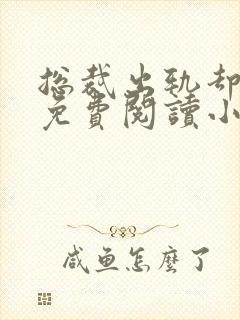 总裁出轨却
免費閱讀小
咸鱼怎麼了